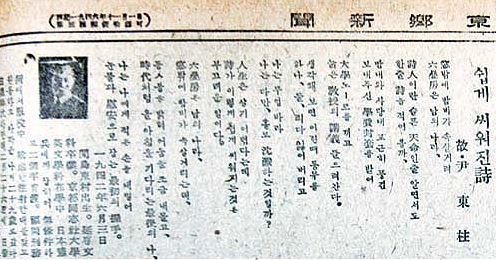 京鄕新聞
쉽게 씌워진 詩
故·尹東柱
窓밖에 밤비가 속살거려
六疊房은 남의 나라,
詩人이란 슬픈 天命인줄 알면서도
한줄 詩를 적어 볼가,
땀내와 사랑내 포근히 품긴
보내주신 學費封套를 받어
大學노-트를 끼고
늙은 敎授의 講義 들으려간다.
생각해 보면 어린때 동무를
하나, 둘, 죄다 잃어 버리고
나는 무얼 바라
나는 다만 홀로 沈澱하는것일가?
人生은 살기 어렵다는데
詩가 이렇게 쉽게 씌워지는것은
부끄러운 일이다.
六疊房은 남의 나라
窓밖에 밤비가 속살거리는데,
등불을 밝혀 어둠을 조곰 내몰고
時代처럼 올 아침을 기다리는 最後의 나,
나는 나에게 적은 손을 내밀어
눈물과 慰安으로 잡는 最初의 握手.
一九四二年六月三日
間島東村出生。延專文
科卒業。京都同志社大學
英文學科在學中 日本憲